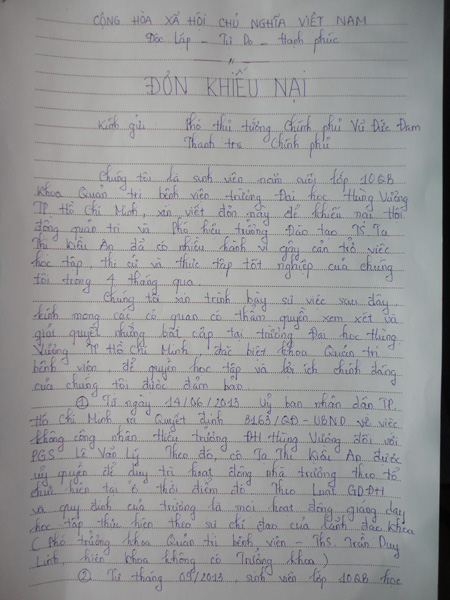 CỘNG HÒA XÃ HỘI CHỦ NGHĨA VIỆT NAM
Độc Lập - Tự Do - Hạnh phúc
ĐƠN KHIẾU NẠI
Kính gửi Phó thủ tướng Chính phủ Vũ Đức Đam
Thanh tra Chính phủ
Chúng tôi là sinh viên năm cuối lớp 10QB
Khoa Quản trị bệnh viện trường Đại học Hùng Vương
TP Hồ Chí Minh, xin viết đơn này để khiếu nại Hội
đồng quản trị và Phó hiệu trưởng Đào tạo TS Tạ
Thị Kiều An đã có nhiều hành vi gây cản trở việc
học tập, thi cử và thực tập tốt nghiệp của chúng
tôi trong 4 tháng qua.
Chúng tôi xin trình bày sự việc sau đây,
kính mong các cơ quan có thẩm quyền xem xét và
giải quyết những bất cập tại trường Đại học Hùng
Vương TP Hồ Chí Minh, đặc biệt khoa Quản trị
bệnh viện, để quyền học tập và lợi ích chính đáng
của chúng tôi được đảm bảo.
① Từ ngày 14/06/2013 Uỷ ban nhân dân TP.
Hồ Chí Minh ra Quyết định 3163/QĐ-UBND về việc
không công nhận Hiệu trưởng ĐH Hùng Vương đối với
PGS Lê Vao Lý. Theo đó cô Tạ Thị Kiều An được
uỷ quyền để duy trì hoạt động nhà trường theo tổ
chức hiện tại ở thời điểm đó. Theo Luật GDĐH
và quy định của trường là mọi hoạt động giảng dạy
học tập thực hiện theo sự chỉ đạo của lãnh đạo Khoa
(Phó trưởng khoa Quản trị bệnh viện - ThS. Trần Duy
Linh, hiện khoa không có Trưởng khoa)
② Từ tháng 09/2013, sinh viên lớp 10QB học